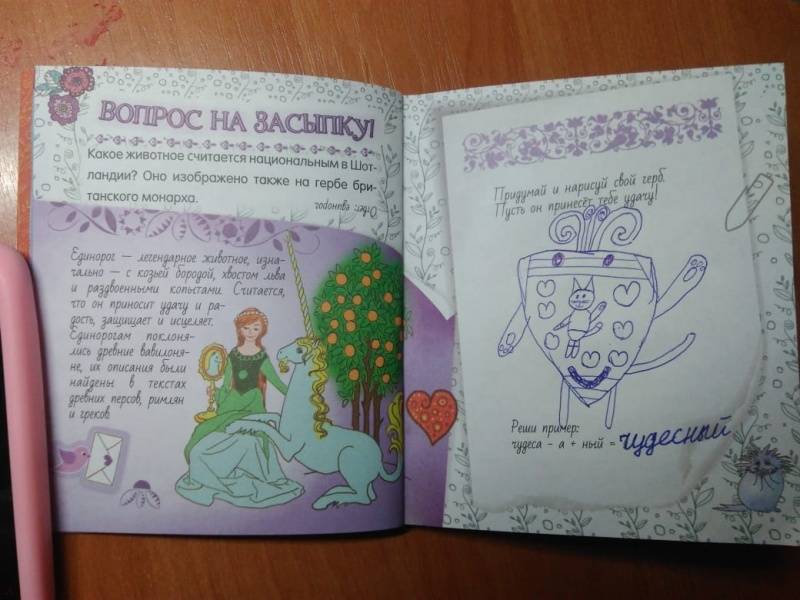 ВОПРОС НА ЗАСЫПКУ!
Какое животное считается национальным в Шот-
ландии? Оно изображено также на гербе бри-
танского монарха.
Ответ: единорог.
Единорог — легендарное животное, изна-
чально — с козьей бородой, хвостом льва
и раздвоенными копытами. Считается,
что он приносит удачу и ра-
дость, защищает и исцеляет.
Единорогам поклоня-
лись древние вавилоня-
не, их описания были
найдены в текстах
древних персов, римлян
и греков.
Придумай и нарисуй свой герб.
Пусть он принесёт тебе удачу!
Реши пример:
чудеса - а + ный = чудесный